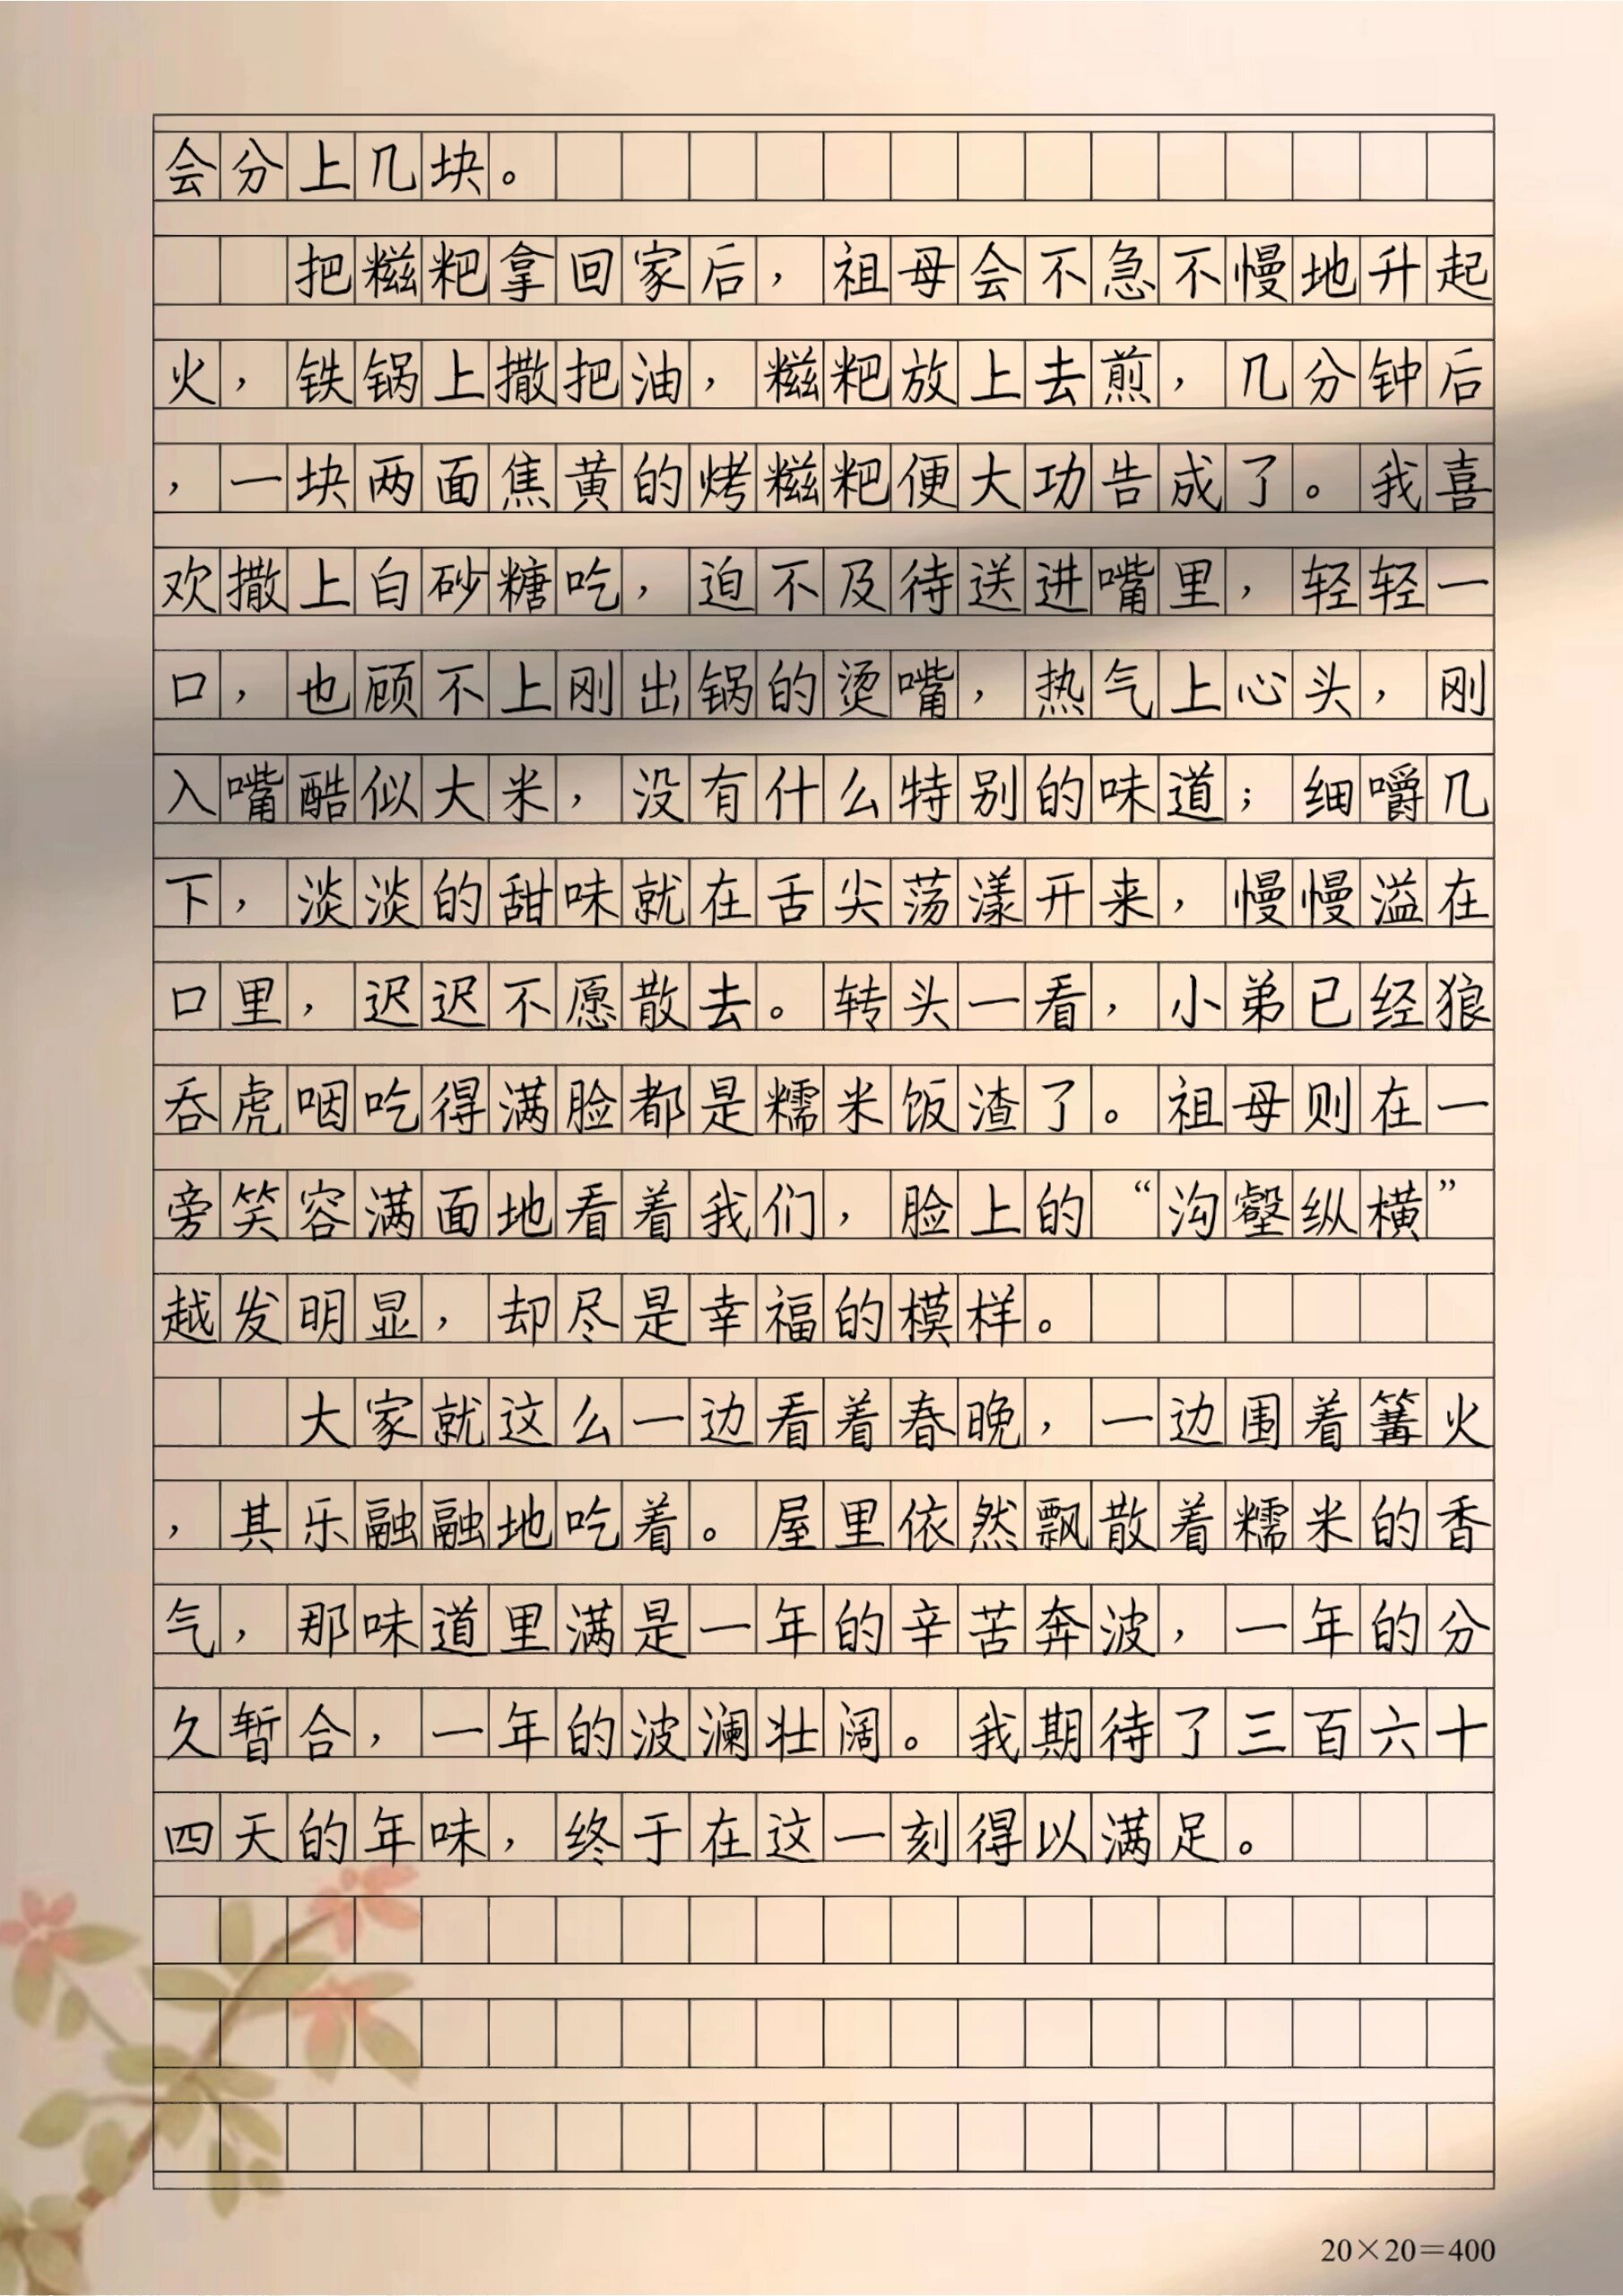 会分上几块。
把糍粑拿回家后，祖母会不急不慢地升起
火，铁锅上撒把油，糍粑放上去煎，几分钟后
，一块两面焦黄的烤糍粑便大功告成了。我喜
欢撒上白砂糖吃，迫不及待送进嘴里，轻轻一
口，也顾不上刚出锅的烫嘴，热气上心头，刚
入嘴酷似大米，没有什么特别的味道；细嚼几
下，淡淡的甜味就在舌尖荡漾开来，慢慢溢在
口里，迟迟不愿散去。转头一看，小弟已经狼
吞虎咽吃得满脸都是糯米饭渣了。祖母则在一
旁笑容满面地看着我们，脸上的“沟壑纵横”
越发明显，却尽是幸福的模样。
大家就这么一边看着春晚，一边围着篝火
，其乐融融地吃着。屋里依然飘散着糯米的香
气，那味道里满是一年的辛苦奔波，一年的分
久暂合，一年的波澜壮阔。我期待了三百六十
四天的年味，终于在这一刻得以满足。
20×20=400